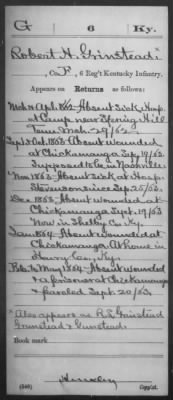 G 6 Ky.
Robert H. Grinstead*
, Co. F, 6 Reg't Kentucky Infantry.
Appears on Returns as follows:
Mch & Apl. 1862 Absent Sick, Hosp.
at Camp near Spring Hill
Tenn. Mch. 29/62.
Sept & Oct. 1863 Absent wounded
at Chickamauga Sep. 19/63
Supposed to be in Nashville
Nov. 1863 Absent sick at Hosp.
Stevenson since Sep. 25/63.
Dec. 1863 Absent wounded at
Chickamauga Sept. 19/63
Now in Shelby Co. Ky.
Jan. 1864 Absent wounded at
Chickamauga. At home in
Henry Co., Ky.
Feb. to May 1864 Absent wounded
& a prisoner at Chickamauga
& paroled Sept. 20/63.
*Also appears as
Grimstead & Gunstead.
Book mark
(546) Copyist.